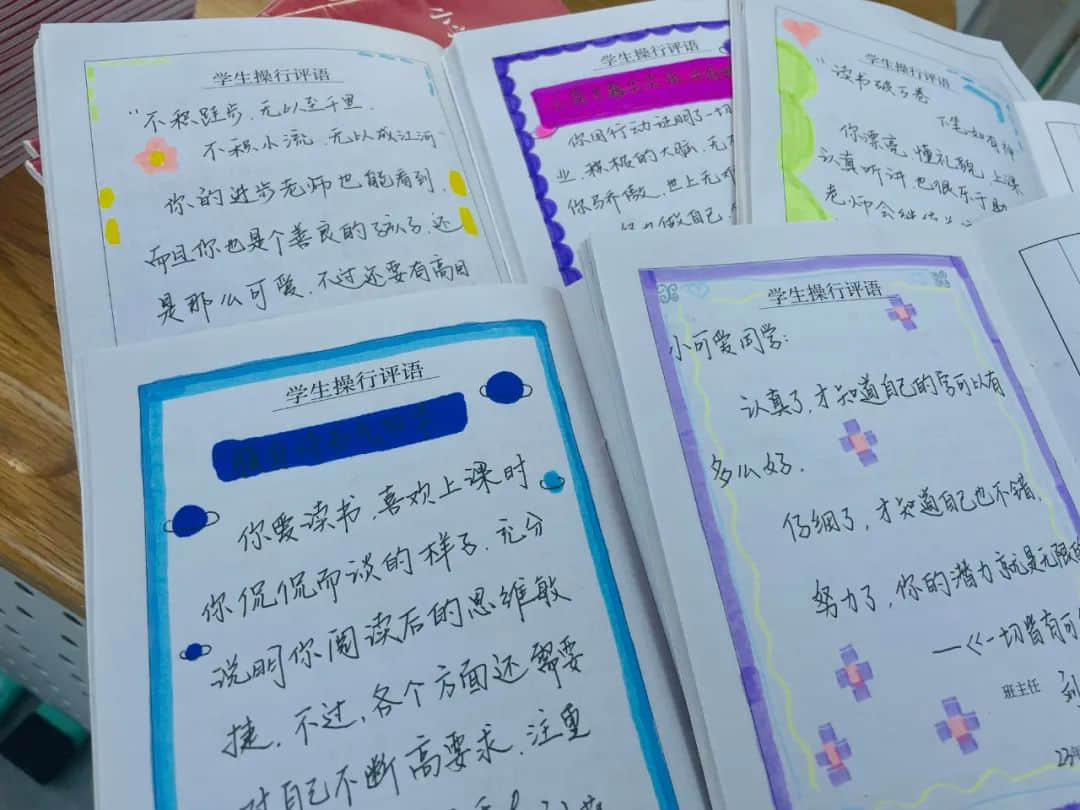 学生操行评语
"不积跬步,无以至千里.
不积小流,无以成江河
你的进步老师也能看到,
而且你也是个善良的孩子,还
是那么可爱,不过还要有高目
学生操行评语
你用行动证明了一切
业,积极的大脑,无
你骄傲,世上无难
做自己
学生操行评语
"读书破万卷
下笔如有神
你漂亮,懂礼貌,上课
认真听讲也很乐于助
老师会继续
学生操行评语
腹有诗书气自华
你爱读书,喜欢上课时
你侃侃而谈的样子,充分
说明你阅读后的思维敏
捷,不过,各个方面还需要
对自己不断高要求,注重
学生操行评语
小可爱同学:
认真了,才知道自己的字可以有
多么好.
仔细了,才知道自己也不错,
努力了,你的潜力就是无限的
—《一切皆有可
班主任 刘
23年